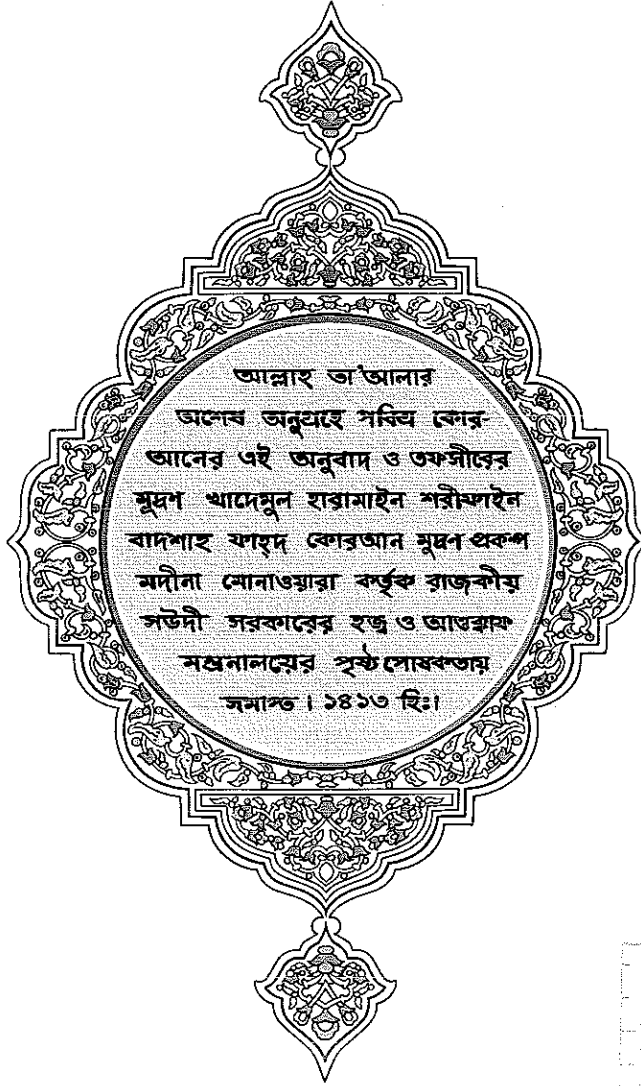 আল্লাহ তা'আলার
অশেষ অনুগ্রহে পবিত্র কোর-
আনের এই অনুবাদ ও তফসীরের
মুদ্রণ খাদেমুল হারামাইন শরীফাইন
বাদশাহ ফাহ্দ কোরআন মুদ্রণ প্রকল্প
মদীনা মোনাওয়ারা কর্তৃক রাজকীয়
সউদী সরকারের হজ্ব ও আওক্বাফ
মন্ত্রনালয়ের পৃষ্ঠপোষকতায়
সমাপ্ত। ১৪১৩ হিঃ।